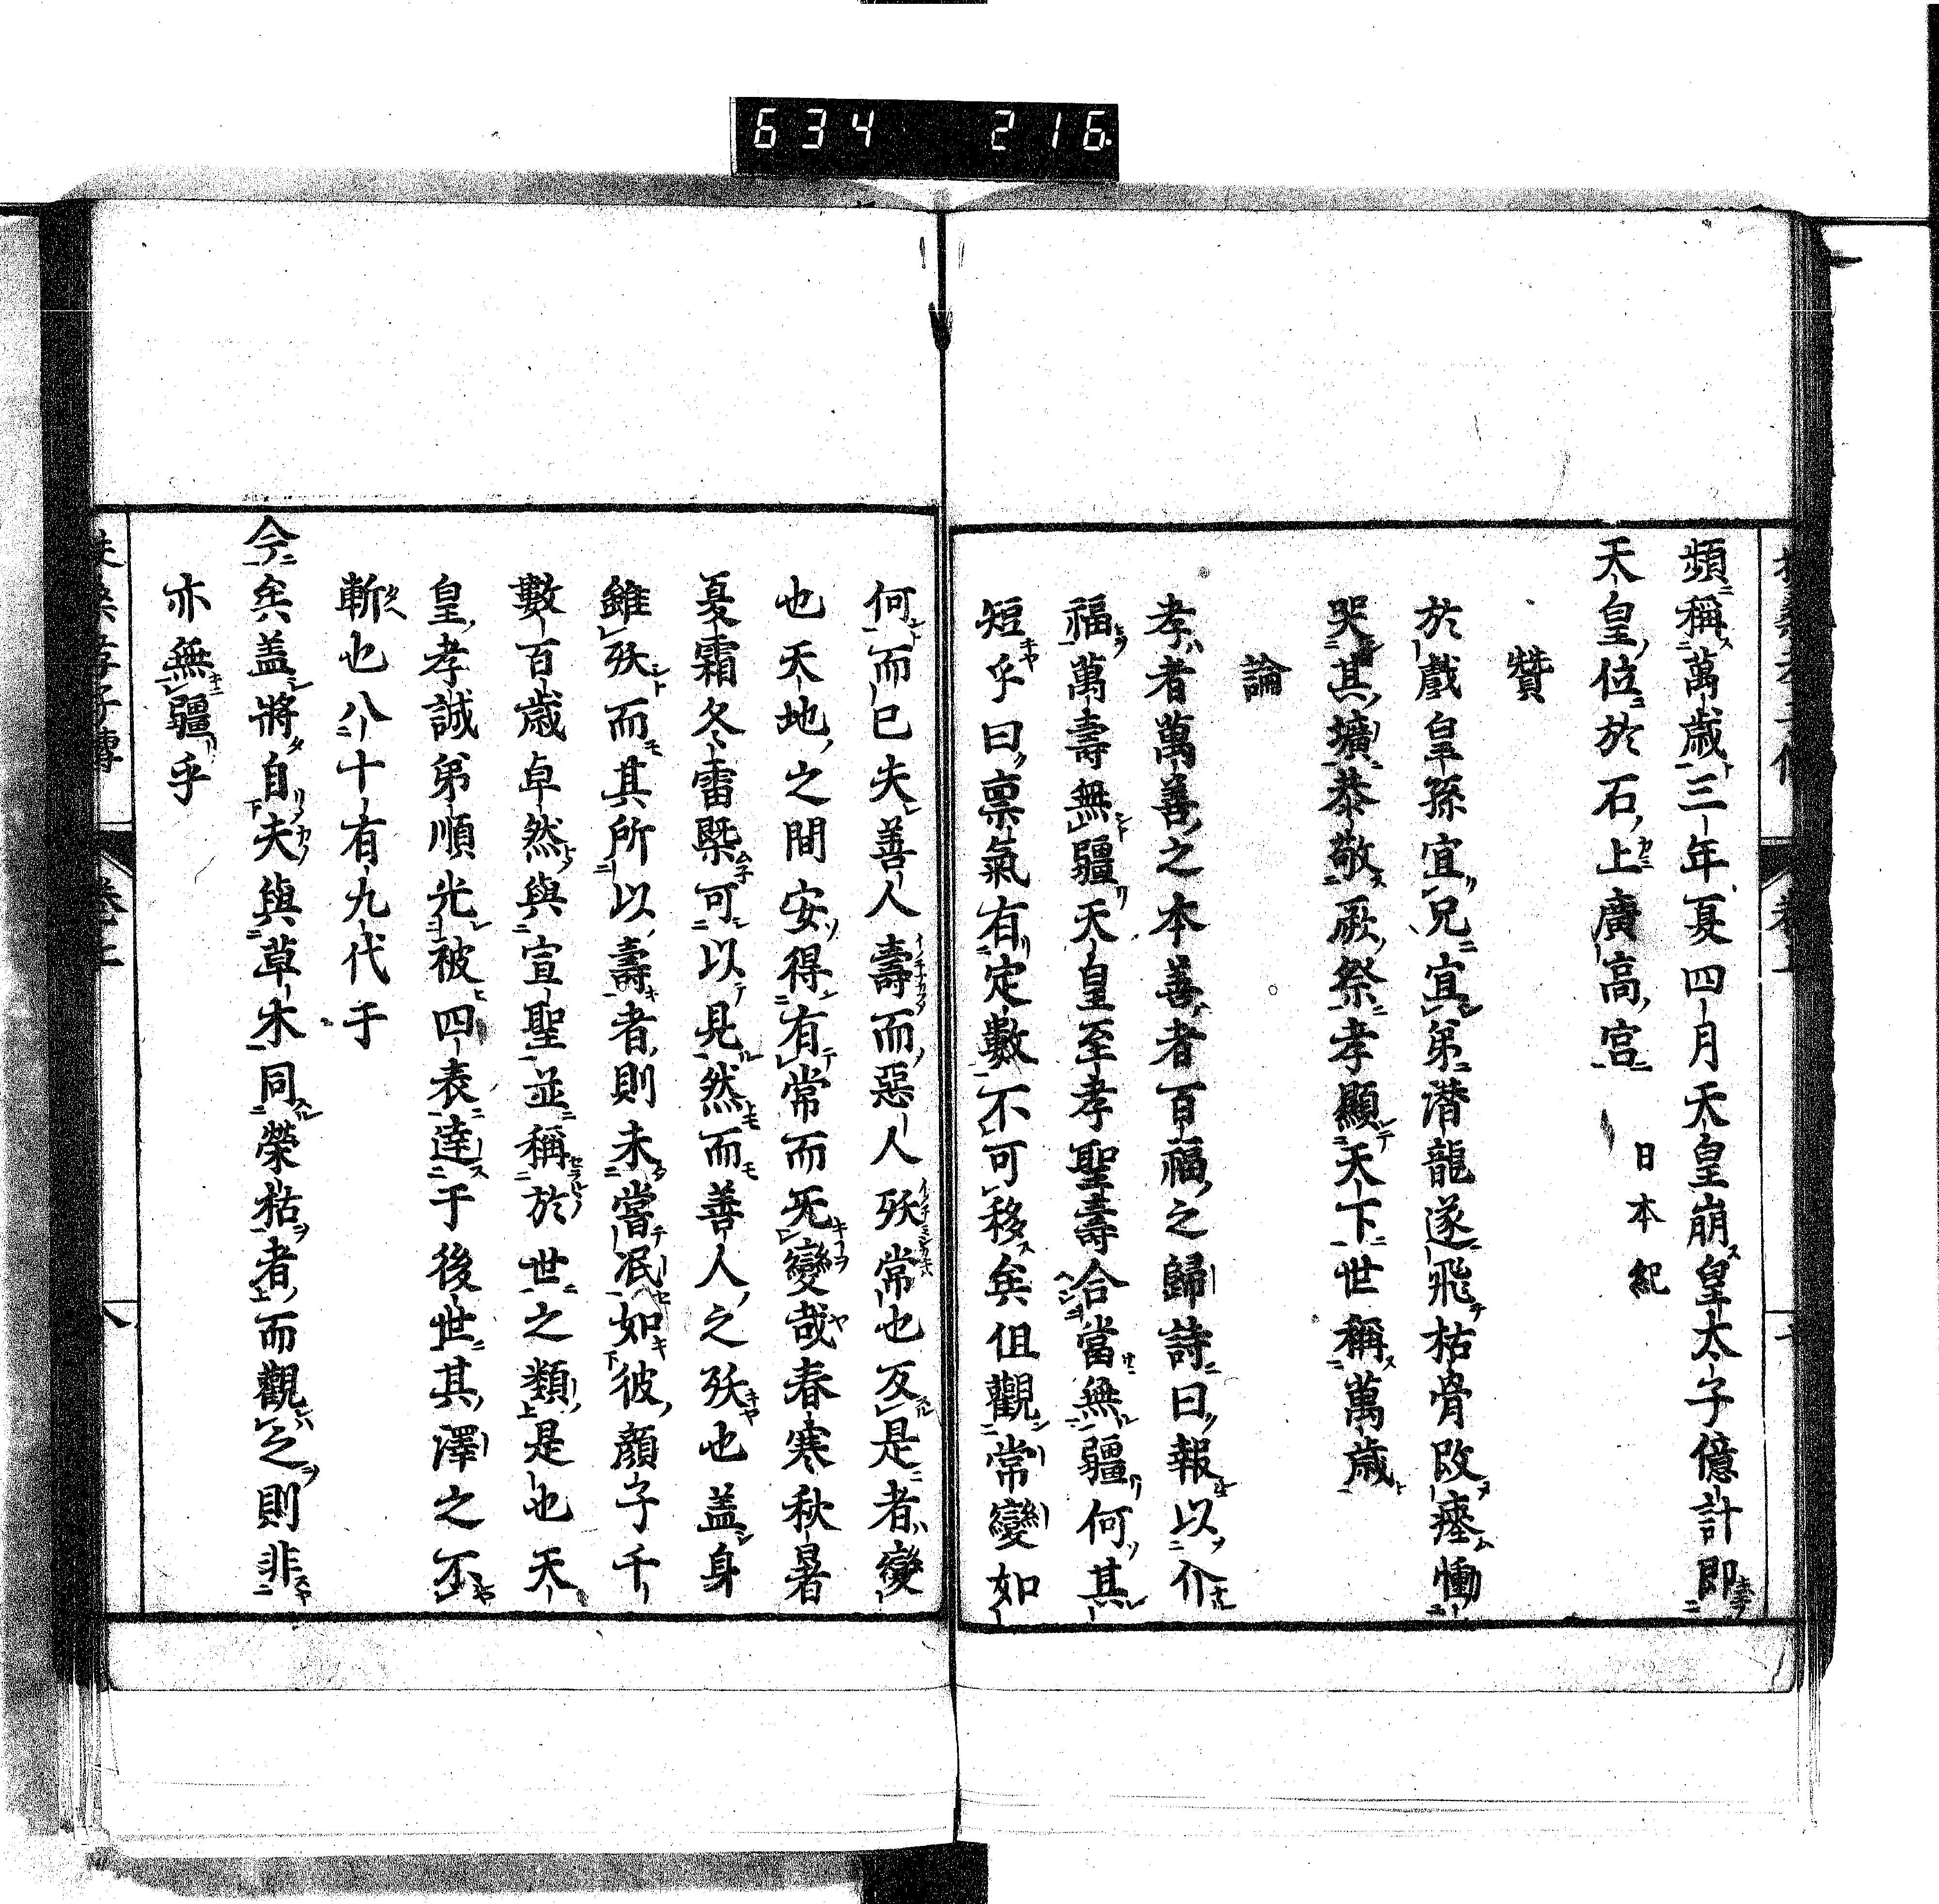 634 216
頻稱萬歳三年夏四月天皇崩皇太子億計即
天皇位於石上廣高宮 日本紀
贊
於戲皇孫宜兄宜弟潛龍遂飛枯骨改瘞慟
哭其壙恭敬厥祭孝顯天下世稱萬歳
論
孝者萬善之本善者百福之歸詩曰報以介
福萬壽無疆天皇至孝聖壽合當無疆何其
短乎曰稟氣有定數不可移矣但觀常變如
何而已夫善人壽而惡人殀常也反是者變
也天地之間安得有常而旡變哉春寒秋暑
夏霜冬雷槩可以見然而善人之殀也盖身
雖殀而其所以壽者則未嘗泯如彼顔子千
數百歳卓然與宣聖並稱於世之類是也天
皇孝誠弟順光被四表達于後世其澤之不
斬也八十有九代于
今矣盖將自夫與草木同榮枯者而觀之則非
亦無疆乎
孝子傳
八